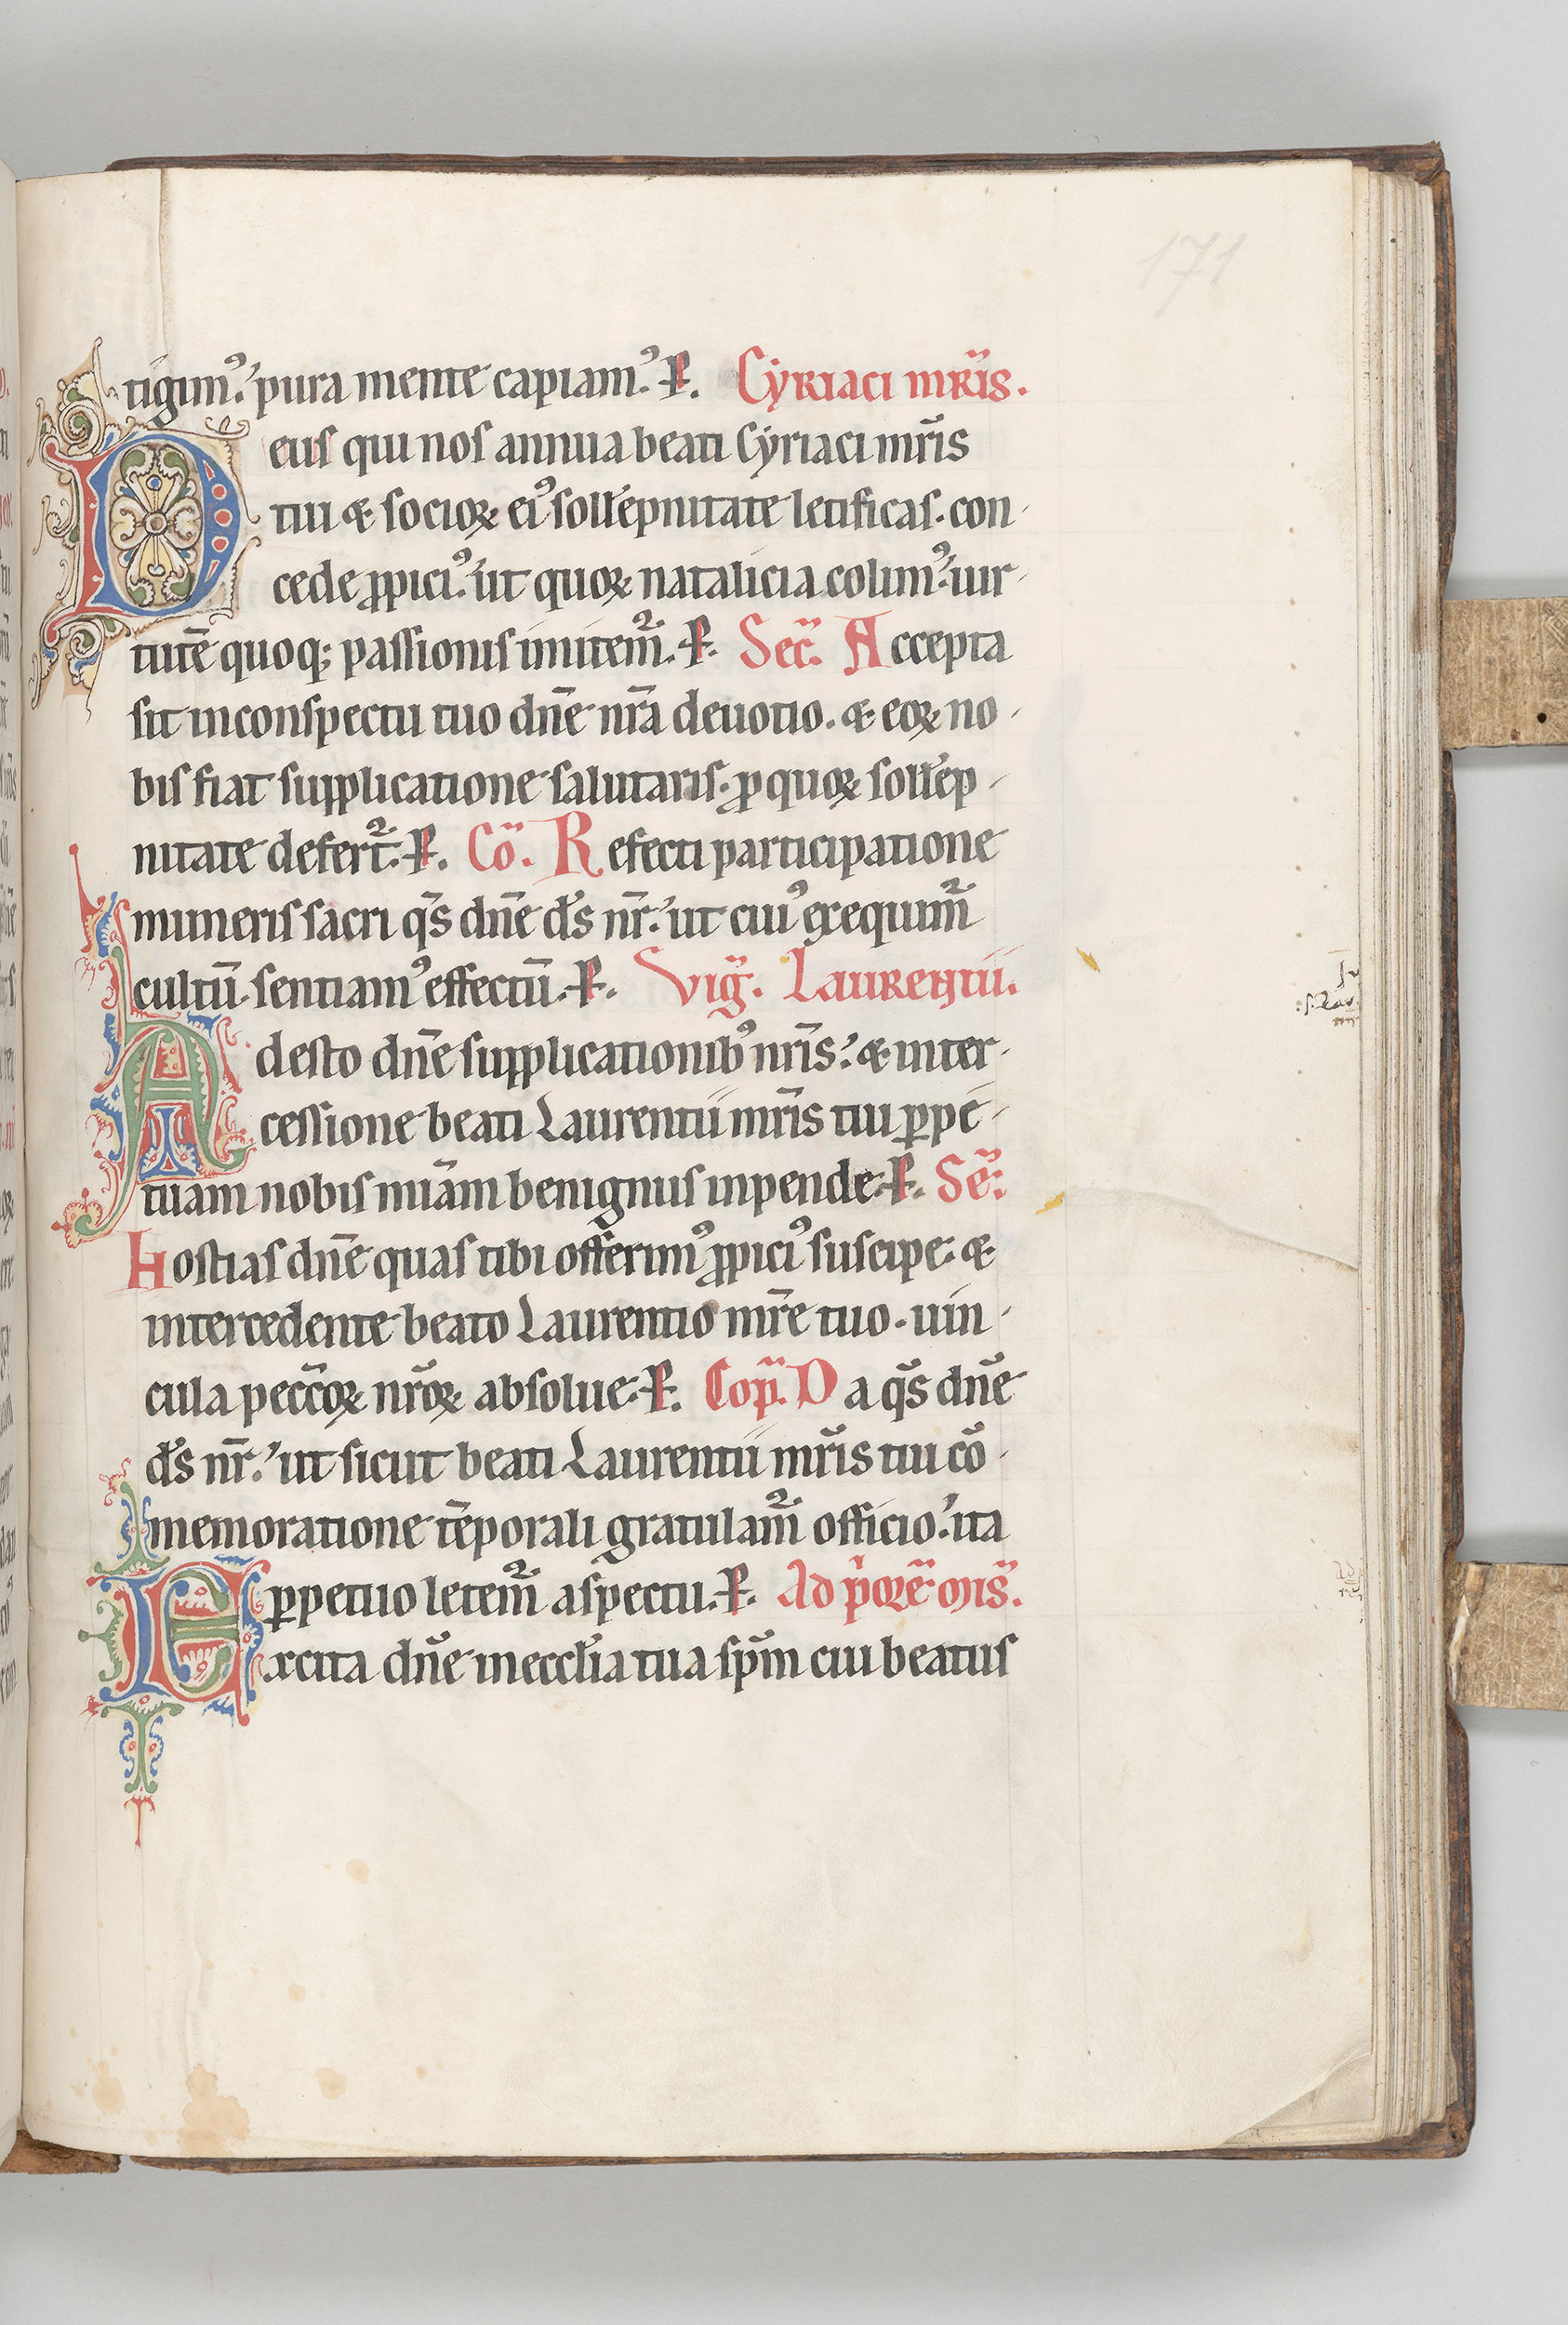 171
tigimꝰ. pura mente capiamꝰ. P. Cyriaci mr̄is.
Deus qui nos annua beati Cyriaci mr̄is
tui & socioꝝ eiꝰ sollēpnitate letificas. con
cede ꝓpiciꝰ. ut quoꝝ natalicia colimꝰ. uir
tutē quoq; passionis imitem̄. P. Sec̄. Accepta
sit inconspectu tuo dn̄e nr̄a deuotio. & eoꝝ no
bis fiat supplicatione salutaris. ꝓ quoꝝ sollēp
nitate defert̄. P. Cō. Refecti participatione
muneris sacri qs̄ dn̄e ds̄ nr̄. ut cuiꝰ exequim̄
cultū. sentiamꝰ effectū. P. Viḡ. Laurentii.
Adesto dn̄e supplicationibꝰ nr̄is. & inter
cessione beati Laurentii mr̄is tui ꝑpe
tuam nobis mīam benignus inpende. P. Sē.
Hostias dn̄e quas tibi offerimꝰ ꝓpiciꝰ suscipe. &
intercedente beato Laurentio mr̄e tuo. uin
cula peccōꝝ nr̄oꝝ absolue. P. Cop̄. Da qs̄ dn̄e
ds̄ nr̄. ut sicut beati Laurentii mr̄is tui cō
memoratione tēporali gratulam̄ officio. ita
ꝑpetuo letem̄ aspectu. P. Ad p̄orē mis̄.
Excita dn̄e inecclīa tua sp̄m cui beatus